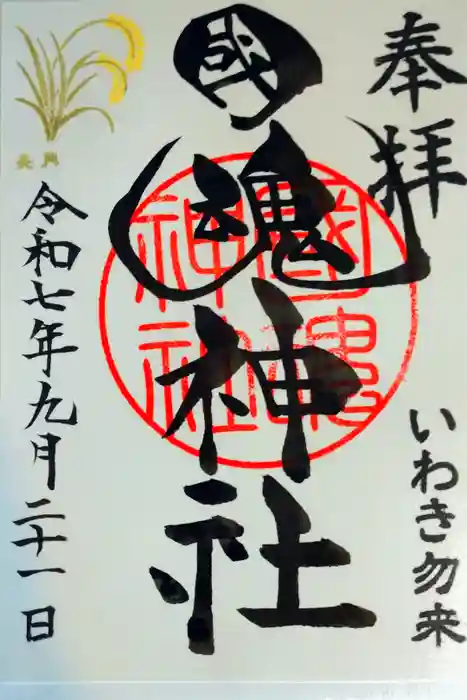 奉拝
いわき勿来
國魂神社
國魂神社
令和七年九月二十一日